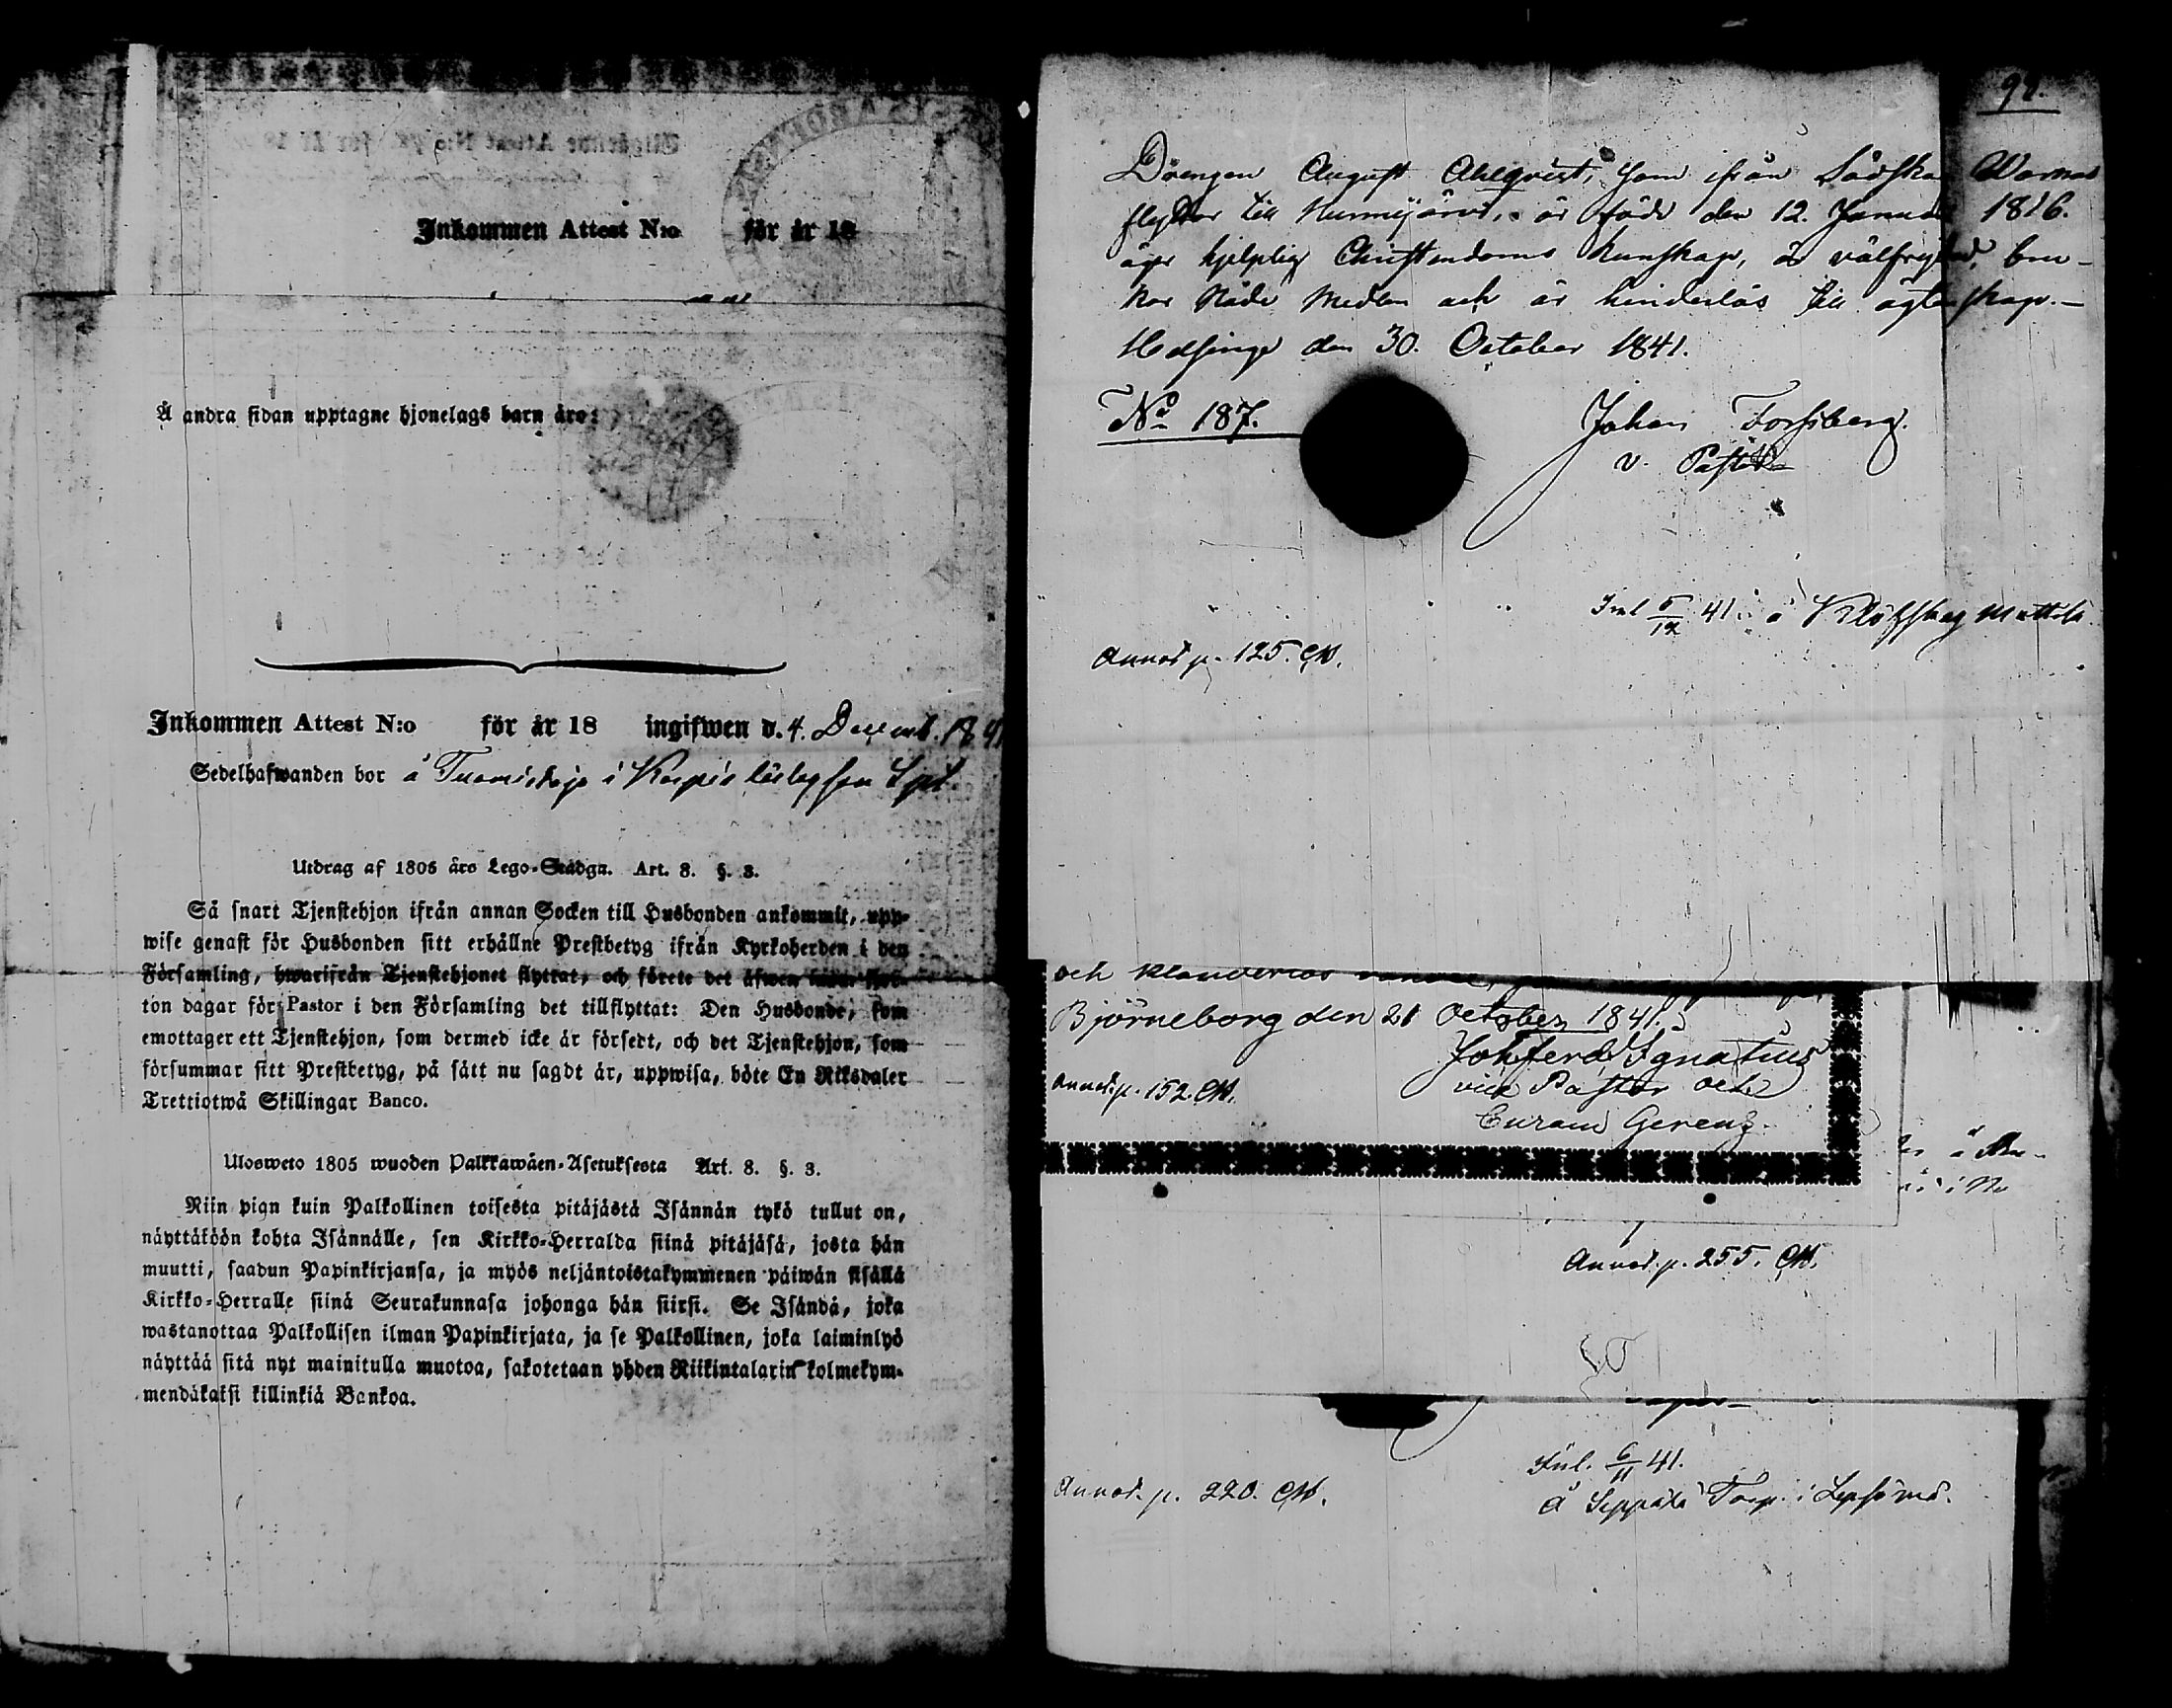 Inkommen Attest N:o för år 18
Å andra sidan upptagne hjonelags barn äro:
Inkommen Attest N:o för år 18 ingifwen d. 4. Decemb. 184
Sedelhafwanden bor å i
Utdrag af 1805 års Lego-Stadga. Art. 8. §. 3.
Så snart Tjenstehjon ifrån annan Socken till Husbonden ankommit, upp-
wise genast för Husbonden sitt erhållne Prestbetyg ifrån Kyrkoherden i den
Församling, hwarifrån Tjenstehjonet flyttat, och förete det äfwen
ton dagar för Pastor i den Församling det tillflyttat: Den Husbonde, som
emottager ett Tjenstehjon, som dermed icke är försedt, och det Tjenstehjon, som
försummar sitt Prestbetyg, på sätt nu sagdt är, uppwisa, böte En Riksdaler
Trettiotwå Skillingar Banco.
Ulosweto 1805 wuoden Palkkawäen-Asetuksesta Art. 8. §. 3.
Niin pian kuin Palkollinen toisesta pitäjästä Isännän tykö tullut on,
näyttäköön kohta Isännälle, sen Kirkko-Herralda siinä pitäjäsä, josta hän
muutti, saadun Papinkirjansa, ja myös neljäntoistakymmenen päiwän sisällä
Kirkko-Herralle siinä Seurakunnasa johonga hän siirsi. Se Isändä, joka
wastanottaa Palkollisen ilman Papinkirjata, ja se Palkollinen, joka laiminlyö
näyttää sitä nyt mainitulla muotoa, sakotetaan yhden Riikintalarin kolmekym-
mendäkaksi killinkiä Bankoa.
98.
Drengen August Ahlqvist, som ifrån
flyttar till Nurmijärvi, är född den 12. Januari 1816.
äger hjelplig Christendoms kunskap, är välfrejdad, bru-
kar Nåde Medlen och är hinderlös till ägtenskap.—
Helsinge den 30. October 1841.
No 187.
Johan Forssberg.
v. Pastor
Inl 5/12 41. å Klöfskog Mattila
Annot. p. 125. CW.
och klanderlös
Björneborg den 21 October 1841.
Joh. Ferd. Ignatius
vice Pastor och
Curam Gerens.
Annot. p. 152. CW.
Annot. p. 255. CW.
Inl. 6/11 41.
å Seppälä Torp i Lepsämä.
Annot. p. 220. CW.